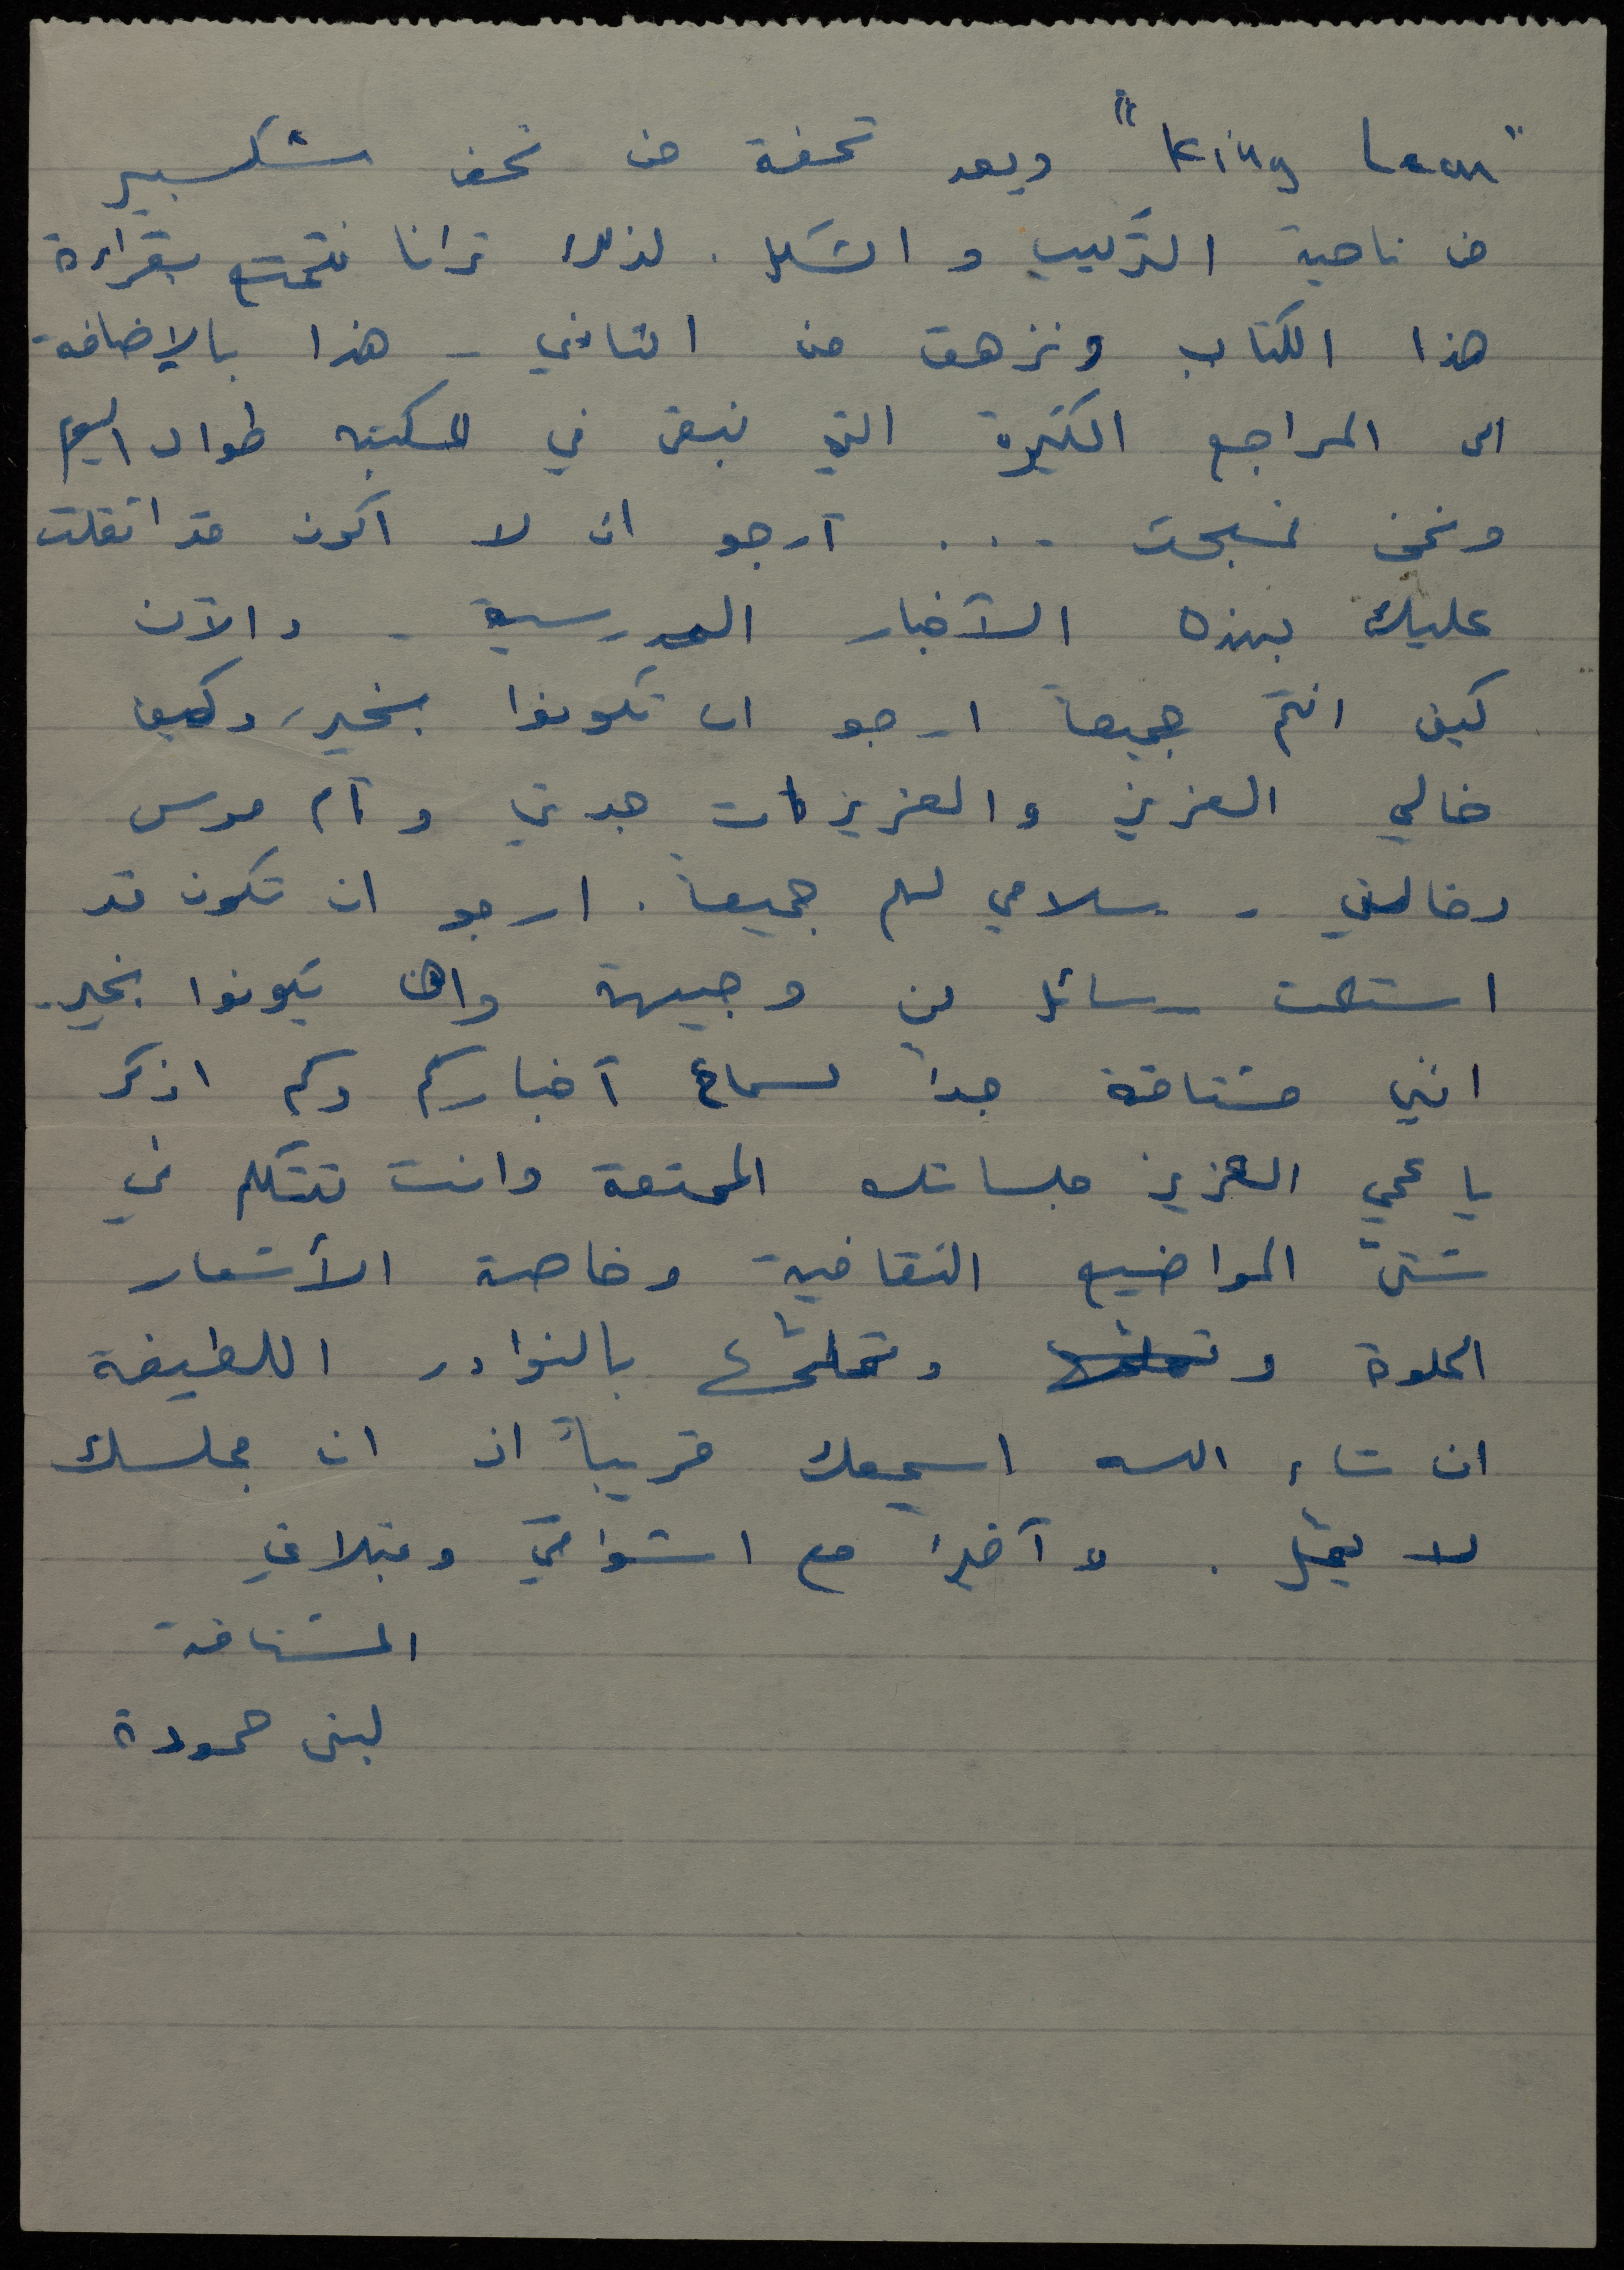 "King Lear" ويعد تحفة من تحف شكسبير
من ناحية التركيب و الشكل. لذلك ترانا نتمتع بقراءة
هذا الكتاب ونزهق من الثاني - هذا بالإضافة
الى المراجع الكثيرة التي نبقى في المكتبه طوال اليوم
ونحن نبحث ... أرجو ان لا اكون قد اثقلت
عليك بهذه الأخبار المدرسية - والآن
كيف انتم جميعاً ارجو ان تكونوا بخير، وكيف
خالي العزيز والعزيزات جدتي وأم موسى
وخالتي - سلامي لهم جميعاً. ارجو ان تكون قد
استلمت رسائل من وجيهة وان يكونوا بخير.
اني مشتاقة جداً لسماع أخباركم وكم اذكر
يا عمي العزيز جلساتك الممتعة وانت تتكلم في
شتى المواضيع الثقافية وخاصة الأشعار
الحلوة و وتملحها بالنوادر اللطيفة
ان شاء الله اسمعك قريباً اذ ان مجلسك
لا يمل. و أخيرا مع اشواقي وقبلاتي
المشتاقة
لبنى حمودة